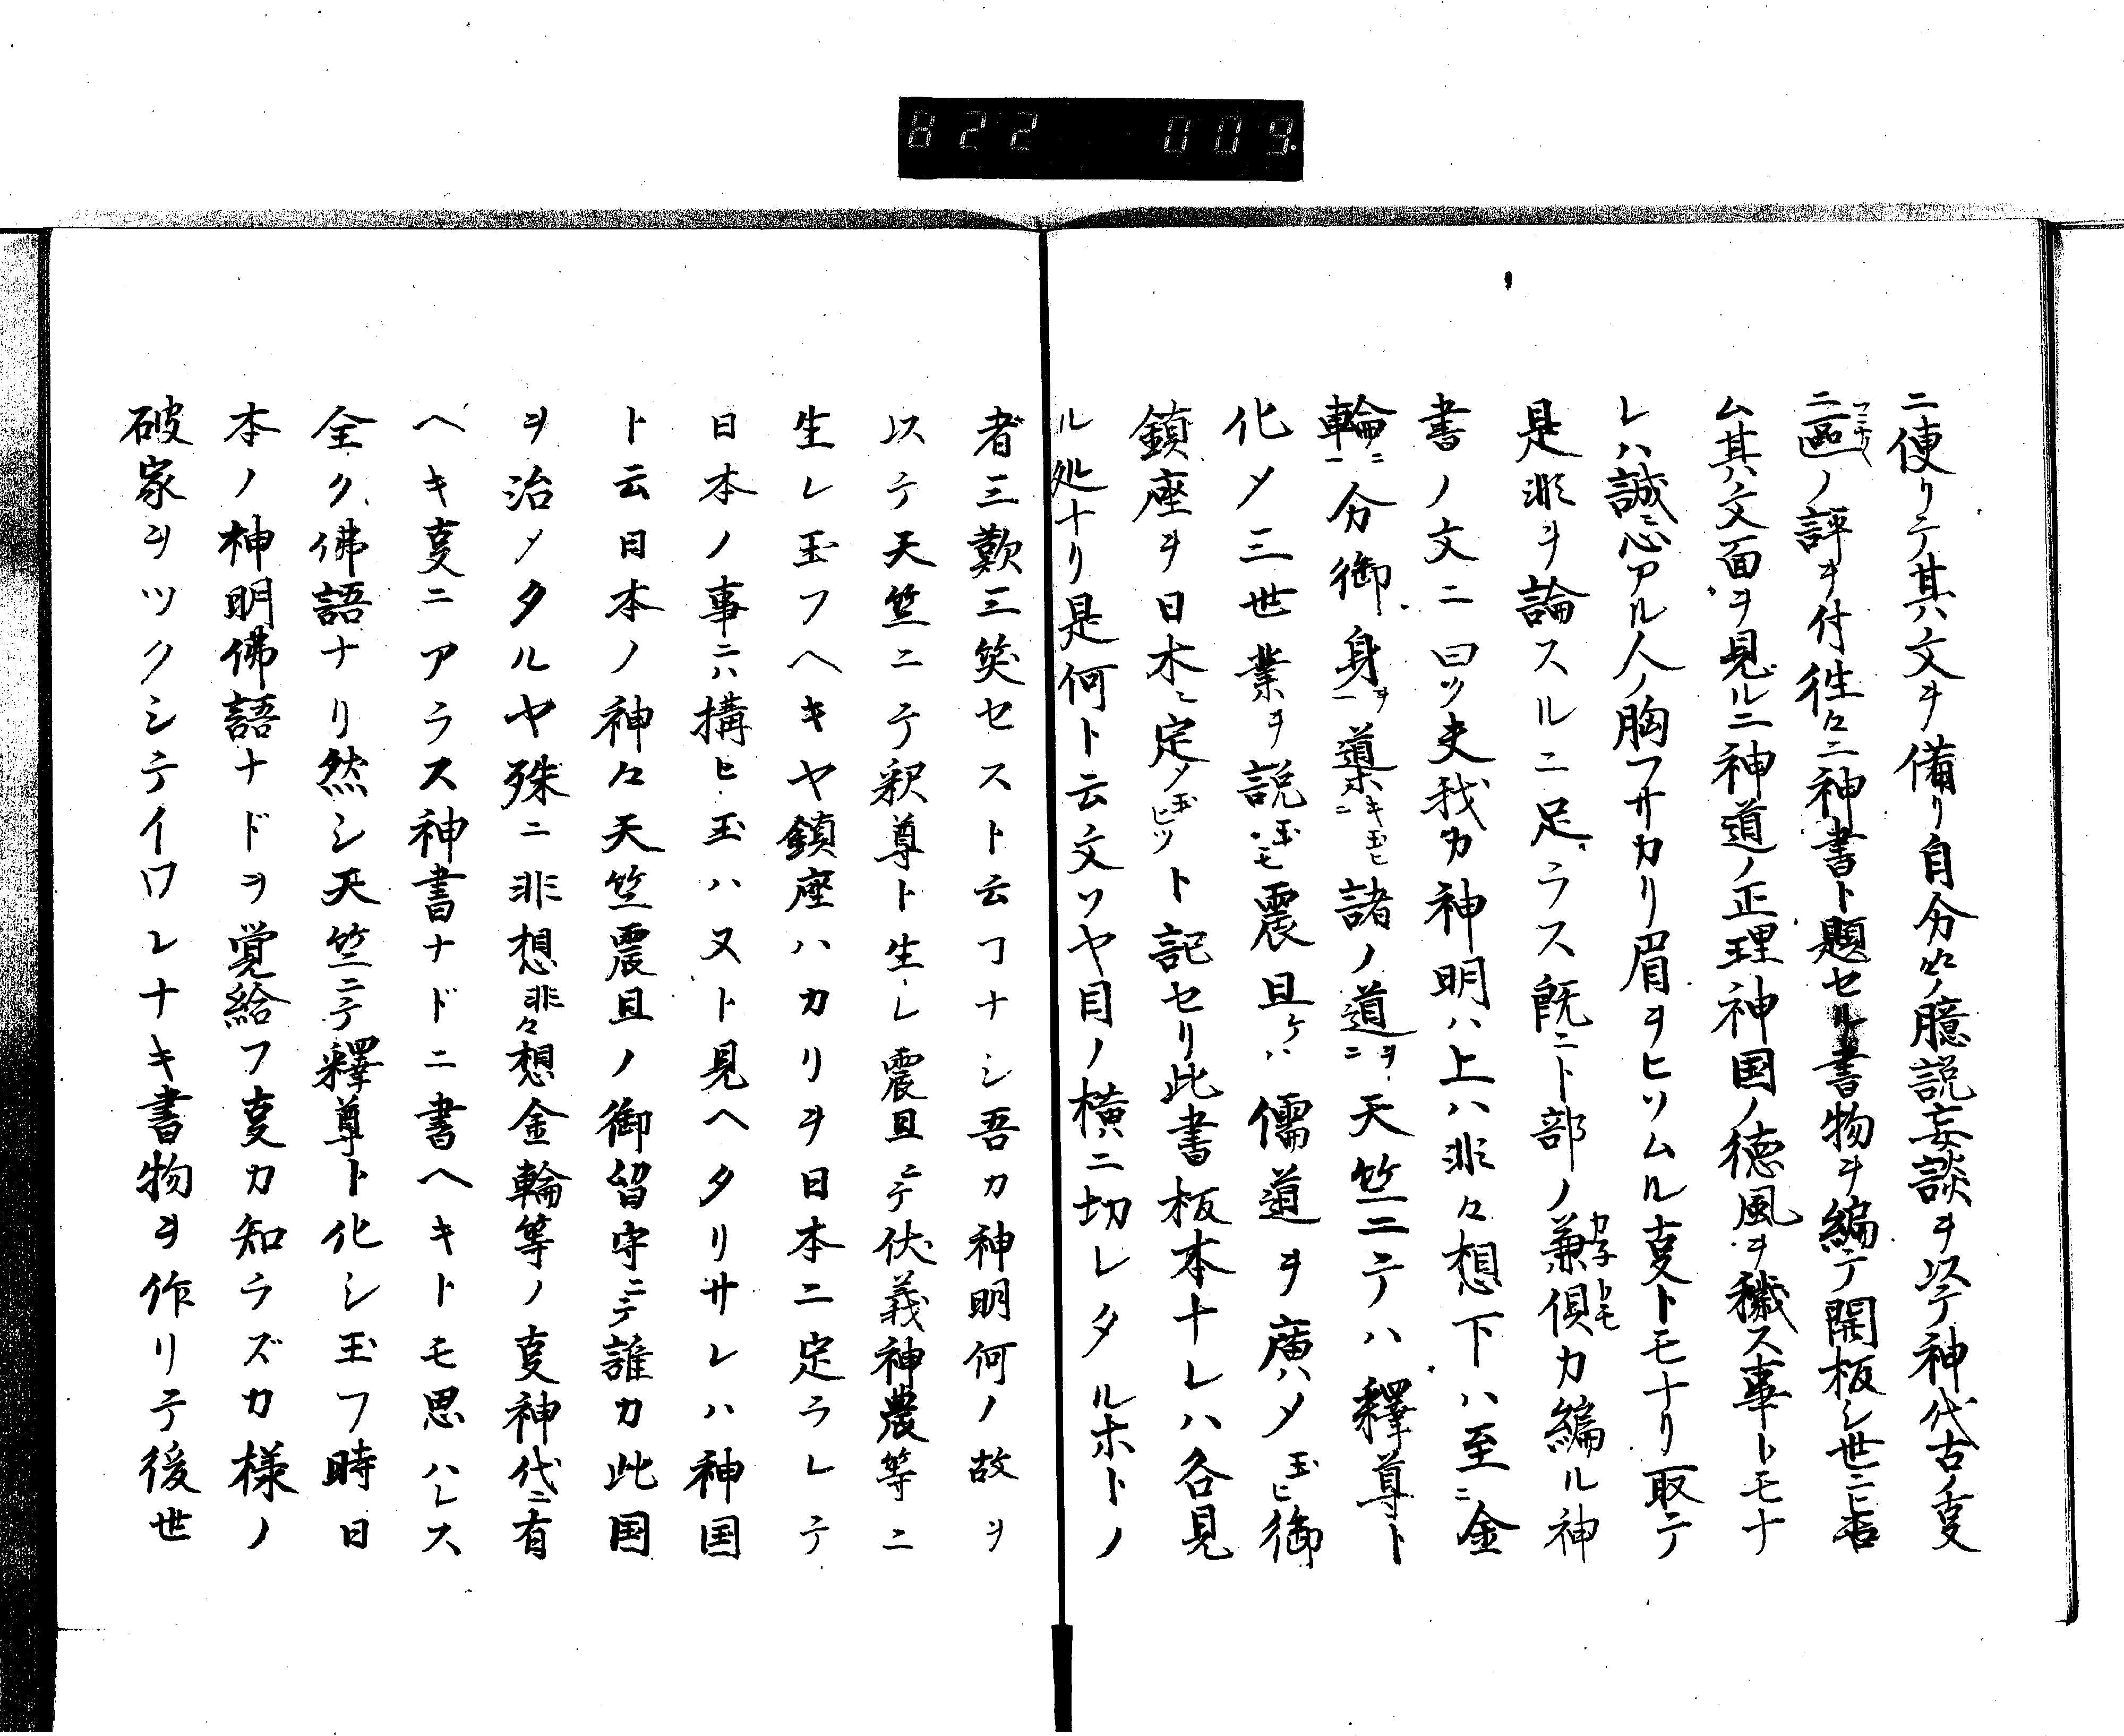 822 009.
ニ便リテ其文ヲ備リ自分々々ノ臆説妄談ヲ以テ神代古ノ㕝
ニ區ノ評ヲ付徃々ニ神書ト題セル書物ヲ編テ開板シ世ニ
ム其文面ヲ見ルニ神道ノ正理神国ノ徳風ヲ穢ス事トモナ
レハ誠ニ心アル人ノ胸フサカリ眉ヲヒソムル㕝トモナリ取テ
是非ヲ論スルニ足ラス既ニト部ノ兼倶カ編ル神
書ノ文ニ曰ツ夫我カ神明ハ上ハ非々想下ハ至ニ金
輪ニ一分御身ヲ一道ニ諸ノ道ヲニ天竺ニテハ釋尊ト
化メ三世業ヲ説玉モ震旦ケハ儒道ヲ廣ハメ玉ヒ御
鎮座ヲ日本ニ定メ玉ヒツト記セリ此書板本ナレハ各見
ル処ナリ是何ト云文ソヤ目ノ横ニ切レタルホトノ
者三歎三笑セスト云フナシ吾カ神明何ノ故ヲ
以テ天竺ニテ釈尊ト生レ震旦ニテ伏義神農等ニ
生レ玉フヘキヤ鎮座ハカリヲ日本ニ定ラレテ
日本ノ事ニハ搆ヒ玉ハヌト見ヘタリサレハ神国
ト云日本ノ神々天竺震旦ノ御留守ニテ誰カ此国
ヲ治メタルヤ殊ニ非想非々想金輪等ノ㕝神代ニ有
ヘキ㕝ニアラス神書ナドニ書ヘキトモ思ハレス
全ク佛語ナリ然シ天竺ニテ釋尊ト化シ玉フ時日
本ノ神明佛語ナドヲ覚給フ㕝カ知ラズカ様ノ
破家ヲツクシテイワレナキ書物ヲ作リテ後世